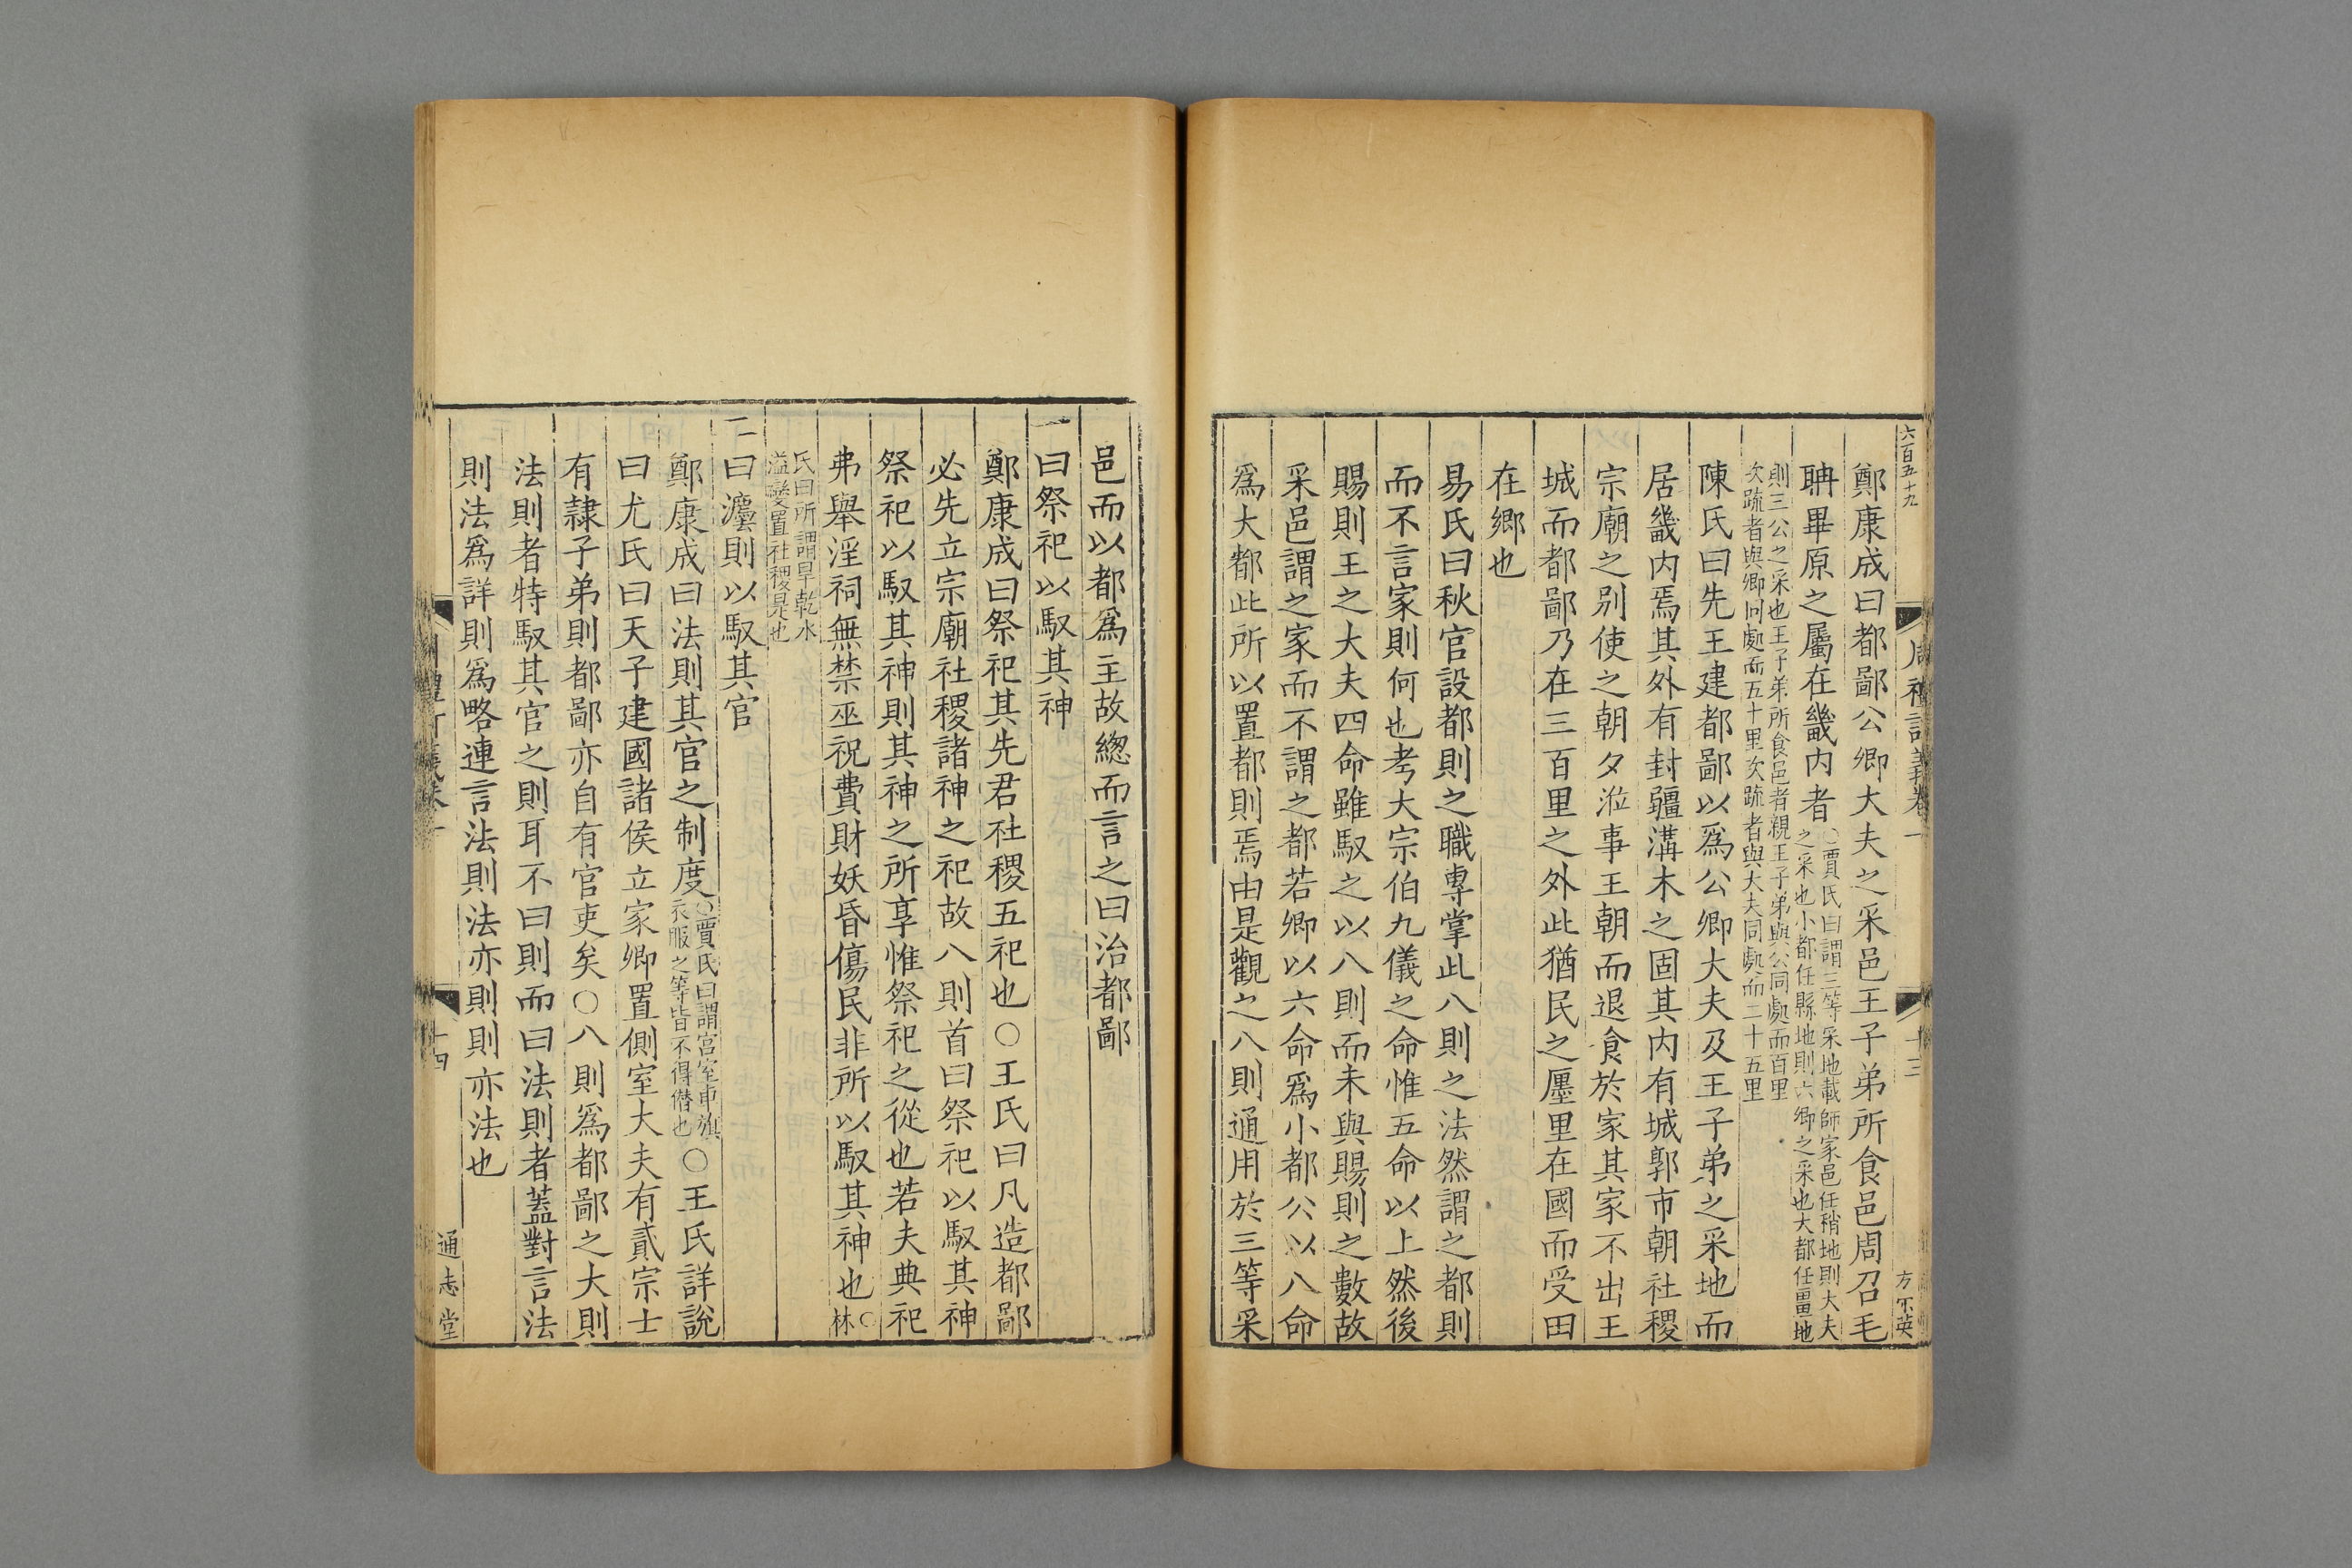 六百五十九
周禮訂義卷一
十三
方不英
鄭康成曰都鄙公卿大夫之采邑王子弟所食邑周召毛
聃畢原之屬在畿内者○賈氏曰謂三等采地載師家邑任稍地則大夫
之采也小都任縣地則六卿之采也大都任畺地
則三公之采也王子弟所食邑者親王子弟與公同處而百里
次䟽者與卿同處而五十里次䟽者與大夫同處而二十五里
陳氏曰先王建都鄙以爲公卿大夫及王子弟之采地而
居畿内焉其外有封疆溝木之固其内有城郭市朝社稷
宗廟之别使之朝夕涖事王朝而退食於家其家不出王
城而都鄙乃在三百里之外此猶民之廛里在國而受田
在鄉也
易氏曰秋官設都則之職專掌此八則之法然謂之都則
而不言家則何也考大宗伯九儀之命惟五命以上然後
賜則王之大夫四命雖馭之以八則而未與賜則之數故
采邑謂之家而不謂之都若卿以六命爲小都公以八命
爲大都此所以置都則焉由是觀之八則通用於三等采
邑而以都爲主故緫而言之曰治都鄙
一曰祭祀以馭其神
鄭康成曰祭祀其先君社稷五祀也○王氏曰凡造都鄙
必先立宗廟社稷諸神之祀故八則首曰祭祀以馭其神
祭祀以馭其神則其神之所享惟祭祀之從也若夫典祀
弗舉淫祠無禁巫祝費財妖昏傷民非所以馭其神也○林
氏曰所謂旱乾水
溢變置社稷是也
二曰灋則以馭其官
鄭康成曰法則其官之制度○賈氏曰謂宮室車旗
衣服之等皆不得僭也○王氏詳說
曰尤氏曰天子建國諸侯立家卿置側室大夫有貳宗士
有隸子弟則都鄙亦自有官吏矣○八則爲都鄙之大則
法則者特馭其官之則耳不曰則而曰法則者蓋對言法
則法爲詳則爲略連言法則法亦則則亦法也
十四
通志堂